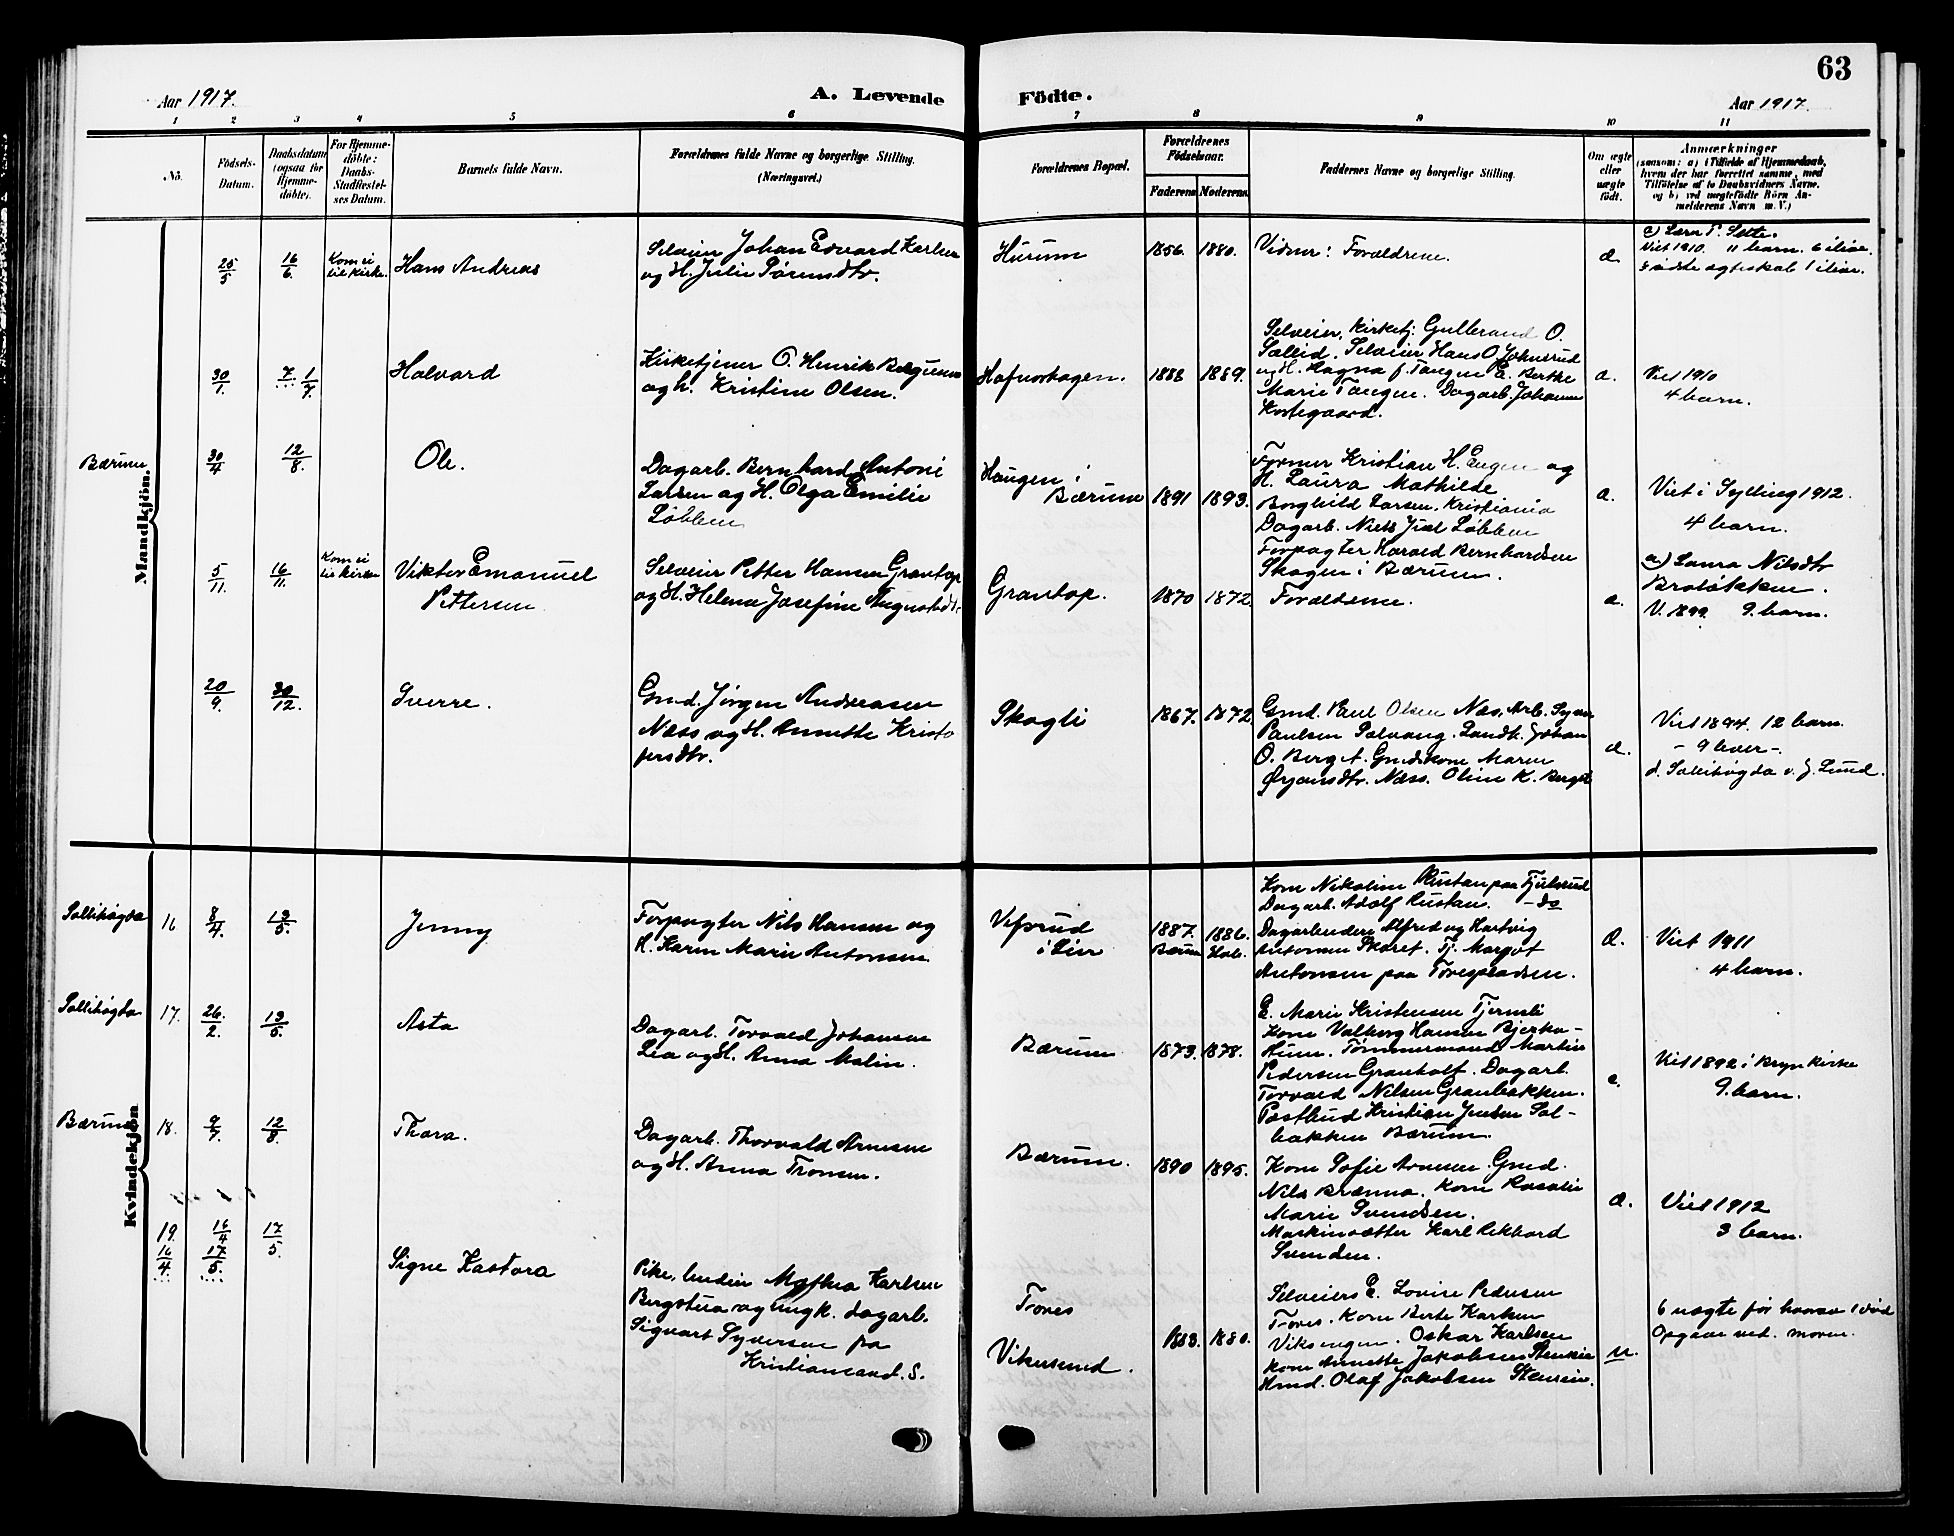 63
Aar 1917.
A. Levende
Födte.
Aar 1917.
1 2 3 4 5 6 7 8 9 10 11
No.
Födsels-
Datum.
Daabsdatum
(ogsaa for
Hjemme-
döbte).
For Hjemme-
döbte:
Daabs-
Stadfæstel-
ses Datum.
Barnets fulde Navn.
Forældrenes fulde Navne og borgerlige Stilling.
(Næringsvei.)
Forældrenes Bopæl.
Forældrenes
Födselsaar.
Faderens
Moderens
Faddernes Navne og borgerlige Stilling.
Om ægte
eller
uægte
födt.
Anmærkninger
(saasom: a) i Tilfælde af Hjemmedaab,
hvem der har forrettet samme, med
Tilföielse af to Daabsvidners Navne.
og b) ved uægtefödte Börn An-
melderens Navn m. V.)
Mandkjön.
25/5
16/6
Kom ei
til kirke
Hans Andreas
Selveier Johan Edvard Karlsen
og H. Julie Sørensdtr.
Hurum
1856.
1880.
Vidner: Forældrene.
æ
Viet 1910. 11 barn. 6 ilive.
første egteskab 1 ilive.
30/1
7. 1/7
Halvard
Kirketjener O. Henrik
og h. Kristine Olsen.
1888
1889.
Selveier, Kirketj. Gulbrand O.
Sollid. Selveier Hans O. Johnsrud
og H. Hagna f. Tangen E. Berthe
Marie Tangen. Dagarb. Johannes
Kortegaard.
a.
Viet 1910
4 barn.
Bærum
30/4
12/8.
Ole.
Dagarb. Bernhard Antoni
Larsen og H. Olga Emilie
Løkken
Haugen i
Bærum
1891
1893.
Kristian H. Engen og
H. Laura Mathilde
Borghild Larsen. Kristiania
Dagarb. Niels Juel Løkken
Forpagter Harald Bernhardsen
Skogen i Bærum.
a.
Viet i Sylling 1912.
4 barn.
5/11.
16/11.
Kom ei
til kirke
Viktor Emanuel
Pettersen
Selveier Petter Hansen Grantop
og H. Helene Josefine Augustsdtr.
Grantop.
1870
1872.
Forældrene.
a.
a) Laura Nilsdtr
Braløkken.
V. 1899. 9. barn.
20/9.
30/12.
Sverre.
Gmd. Jørgen Andreasen
Næss og H. Annette Kristo
fersdtr.
Skogli
1867.
1872
Gmd. Paul Olsen Næs, Arb. Syver
Paulsen Solvang. Landh. Johan
O. Berget. Gmdskone Maren
Ørjansdtr. Næss. Oline K. Berget
æ.
Viet 1894. 12 barn.
- 9 lever -.
d. Sollihøgda v. J. Lund.
Kvindekjön
Sollihøgda
16
8/4.
13/5.
Jenny
Forpagter Nils Hansen og
H. Karen Marie Antonsen
Vefsrud
i Lier
1887.
Bærum
1886.
Hole.
Kone Nikoline Rustan paa Tjulsrud
Dagarb. Adolf Rustan. - do
Dagarbeidere Alfred og Hartvig
Antonsen Skaret. Tj. Margot
Antonsen paa Tovepladsen.
Æ.
Viet 1911
4 barn.
Sollihøgda
17.
26./2.
13/5.
Asta
Dagarb. Torvald Johansen
Lia og H. Anna Malin.
Bærum
1873.
1878.
E. Marie Kristensen Tjernsli
Kone Valborg Hansen Bjerka-
Hun. Tømmermand Martin
Pedersen Granholt. Dagarb.
Torvald Nilsen Granbakken.
Postbud Kristian Jensen Sol-
bakken Bærum.
e.
Viet 1892 i Bryn Kirke
9. barn.
Bærum
18.
9/7.
12/8.
Thora.
Dagarb. Thorvald Arnesen
og H. Anna Tronsen.
Bærum.
1890
1895.
Kone Sofie Arnesen. Gmd.
Nils Brænna. Kone Rosalie
Marie Svendsen.
Maskinsætter Karl Rikhard
Svendsen.
æ.
Viet 1912
3 barn.
19.
16/4
17/5.
16/4
17/5.
Signe Kastora
Pike, budeie Mathea Karlsen
Bergstua og ungk. dagarb.
Sigvart Syversen fra
Kristiansand. S.
Toves
Vikersund.
1883.
1880.
Selveiers E. Lovise Pedersen
Toves. Kone Berte Karlsen
Viksengen. Oskar Karlsen
Kone Annette Jakobsen Stensein
Hmd. Olaf Jakobsen Stensein.
u.
6 uægte før hvorav 1 død
Opgave ved. moren.